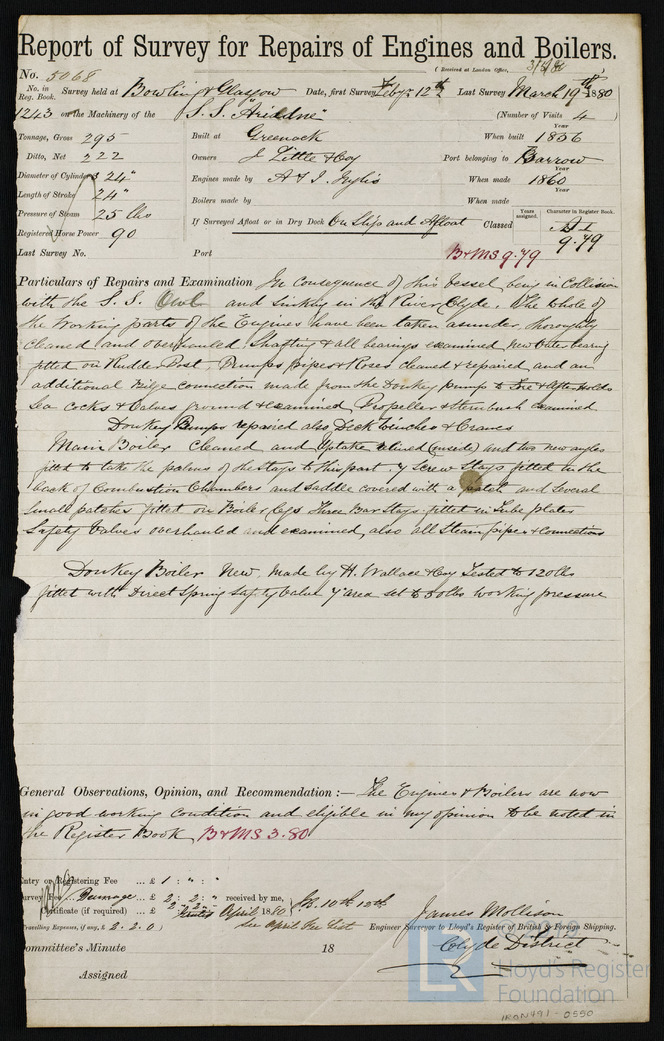 Report of Survey for Repairs of Engines and Boilers.
No. 5068 (Received at London Office, 3/4/80)
No. in Reg. Book. Survey held at Bowling & Glasgow Date, first Survey Feby 12th Last Survey March 19th 1880
1243 on the Machinery of the S.S. "Ariadne" (Number of Visits 4)
Tonnage, Gross 295 Built at Greenock When built Year 1856
Ditto, Net 222 Owners J Little & Coy Port belonging to Barrow
Diameter of Cylinders 24" Engines made by A & J. Inglis When made Year 1860
Length of Stroke 24" Boilers made by When made Year
Pressure of Steam 25 lbs If Surveyed Afloat or in Dry Dock On Slip and Afloat Classed Years assigned. Character in Register Book. A1
Registered Horse Power 90 9.79
Last Survey No. Port B&MS 9.79
Particulars of Repairs and Examination In consequence of this Vessel being in Collision
with the S.S. Owl and sinking in the River Clyde. The whole of
the Working parts of the Engines have been taken asunder, thoroughly
cleaned and overhauled. Shafting & all bearings examined, new outer bearing
fitted on Rudder Post, Pumps pipes & Roses cleaned & repaired and an
additional Bilge connection made from the Donkey pump to Fore & After Holds
Sea cocks & Valves ground & examined Propeller & Sternbush examined
Donkey Pumps repaired also Deck Winches & Cranes
Main Boiler cleaned and Uptake relined (inside) and two new angles
fitted to take the palms of the Stays to this part, 4 Screw Stays fitted in the
back of Combustion Chambers and Saddle covered with a patch and Several
Small patches fitted on Boiler legs Three Bar Stays fitted in Tube plates
Safety Valves overhauled and examined, also all Steam pipes & Connections
Donkey Boiler New, Made by H. Wallace & Coy Tested to 120 lbs
fitted with Direct Spring Safety Valve 4" area set to 50 lbs working pressure
General Observations, Opinion, and Recommendation :— The Engines & Boilers are now
in good working condition and eligible in my opinion to be noted in
the Register Book B&MS 3.80
Entry or Registering Fee ... £ 1 : " : "
Survey Fee .. Damage ... £ 2 : 2 : " received by me,
Certificate (if required) ... £ April 1880
Travelling Expenses, if any, £ 2.2.0) See April Fee List
James Mollison
Engineer Surveyor to Lloyd's Register of British & Foreign Shipping.
Clyde District
Committee's Minute 18
Assigned
LR
Lloyd's Register
Foundation
IRON491-0550